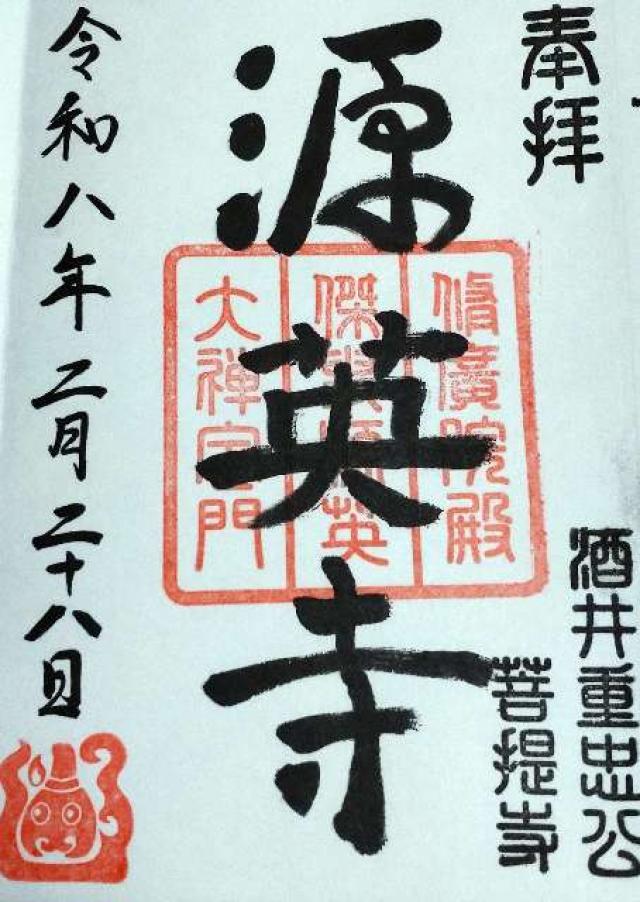 奉拝
酒井重忠公
菩提寺
源英寺
脩廣院殿
傑叟源英
大禅定門
令和八年二月二十八日